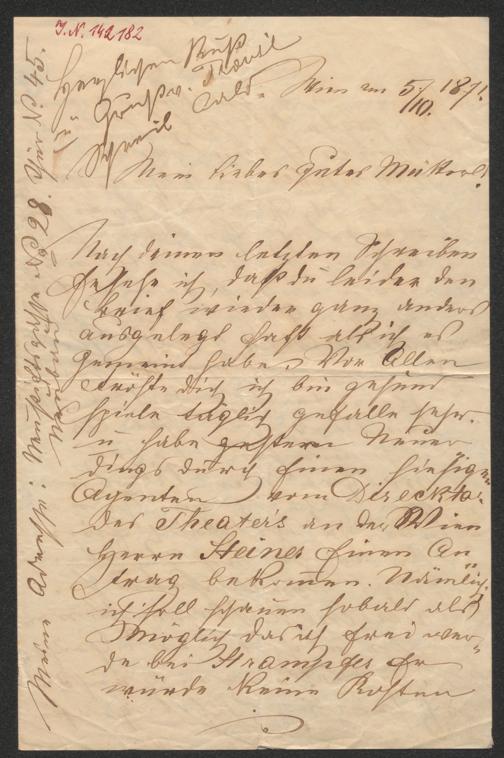 I.N. 142182
Herzlichen Kuß
u Gruß v.
Schreib bald.
Wien am 5/10. 1871.
Mein liebes gutes Mutterl!
Nach deinem letzten Schreiben
sehe ich, daß du leider den
Brief wieder ganz anders
ausgelegt hast als ich es
gemeint habe. Vor Allen
tröste dich, ich bin gesund
spiele täglich gefalle sehr.
u habe gestern Neuer
dings durch Einen hiesigen
Agenten vom Direcktor
des Theater's an der Wien
Herrn Steiner Einen An
trag bekomen. Nämlich
ich soll schauen sobald als
Möglich das ich frei wer-
de bei Strampfer Er
würde keine Kosten
Meine Adresse: Neustiftgasse No 28. Thür No. 45.
Neubau